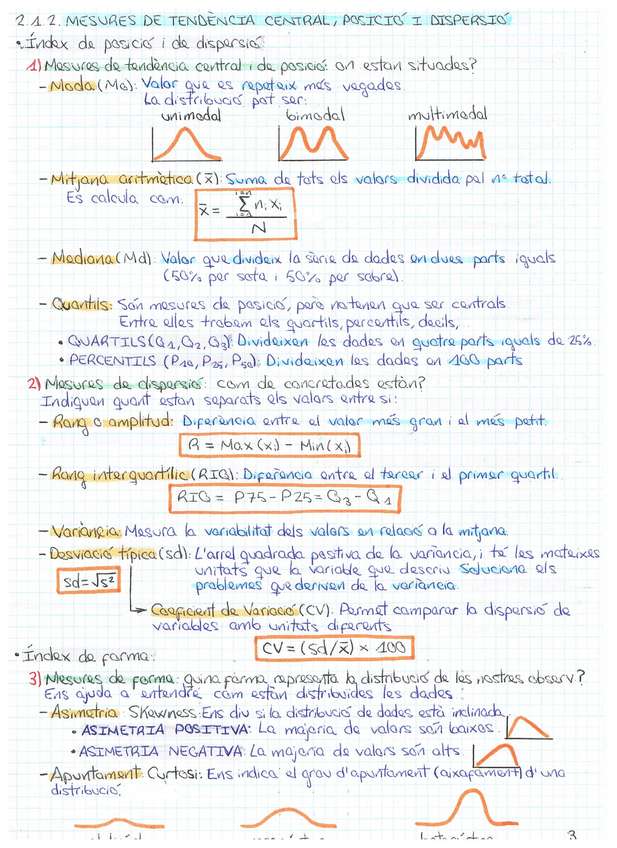 2.1.2. MESURES DE TENDÈNCIA CENTRAL, POSICIÓ I DISPERSIÓ
• Índex de posició i de dispersió:
1) Mesures de tendència central i de posició: on estan situades?
- Moda (Mo): Valor que es repeteix més vegades.
La distribució pot ser:
unimodal bimodal multimodal
- Mitjana aritmètica (x̄): Suma de tots els valors dividida pel nº total.
Es calcula com: x̄ = Σ i=1 i=n nᵢ xᵢ / N
- Mediana (Md): Valor que divideix la sèrie de dades en dues parts iguals
(50% per sota i 50% per sobre).
- Quantils: Són mesures de posició, però no tenen que ser centrals.
Entre elles trobem els quartils, percentils, decils,
• QUARTILS (Q1, Q2, Q3): Divideixen les dades en quatre parts iguals de 25%.
• PERCENTILS (P10, P25, P50): Divideixen les dades en 100 parts
2) Mesures de dispersió: com de concretades estàn?
Indiquen quant estan separats els valors entre si:
- Rang o amplitud: Diferència entre el valor més gran i el més petit.
R = Max (xᵢ) - Min (xᵢ)
- Rang interquartílic (RIQ): Diferència entre el tercer i el primer quartil.
RIQ = P75 - P25 = Q3 - Q1
- Variància: Mesura la variabilitat dels valors en relació a la mitjana.
- Desviació típica (sd): L'arrel quadrada positiva de la variància, i té les mateixes
unitats que la variable que descriu. Soluciona els
sd = √s² problemes que deriven de la variància.
Coeficient de Variació (CV): Permet comparar la dispersió de
variables amb unitats diferents
CV = (sd/x̄) × 100
• Índex de forma:
3) Mesures de forma: quina forma representa la distribució de les nostres observ?
Ens ajuda a entendre com están distribuides les dades:
- Asimetria: Skewness: Ens diu si la distribució de dades està inclinada
• ASIMETRIA POSITIVA: La majoria de valors són baixos.
• ASIMETRIA NEGATIVA: La majoria de valors són alts
- Apuntament: Curtosi: Ens indica el grau d'apuntament (aixafament) d'una
distribució.
3